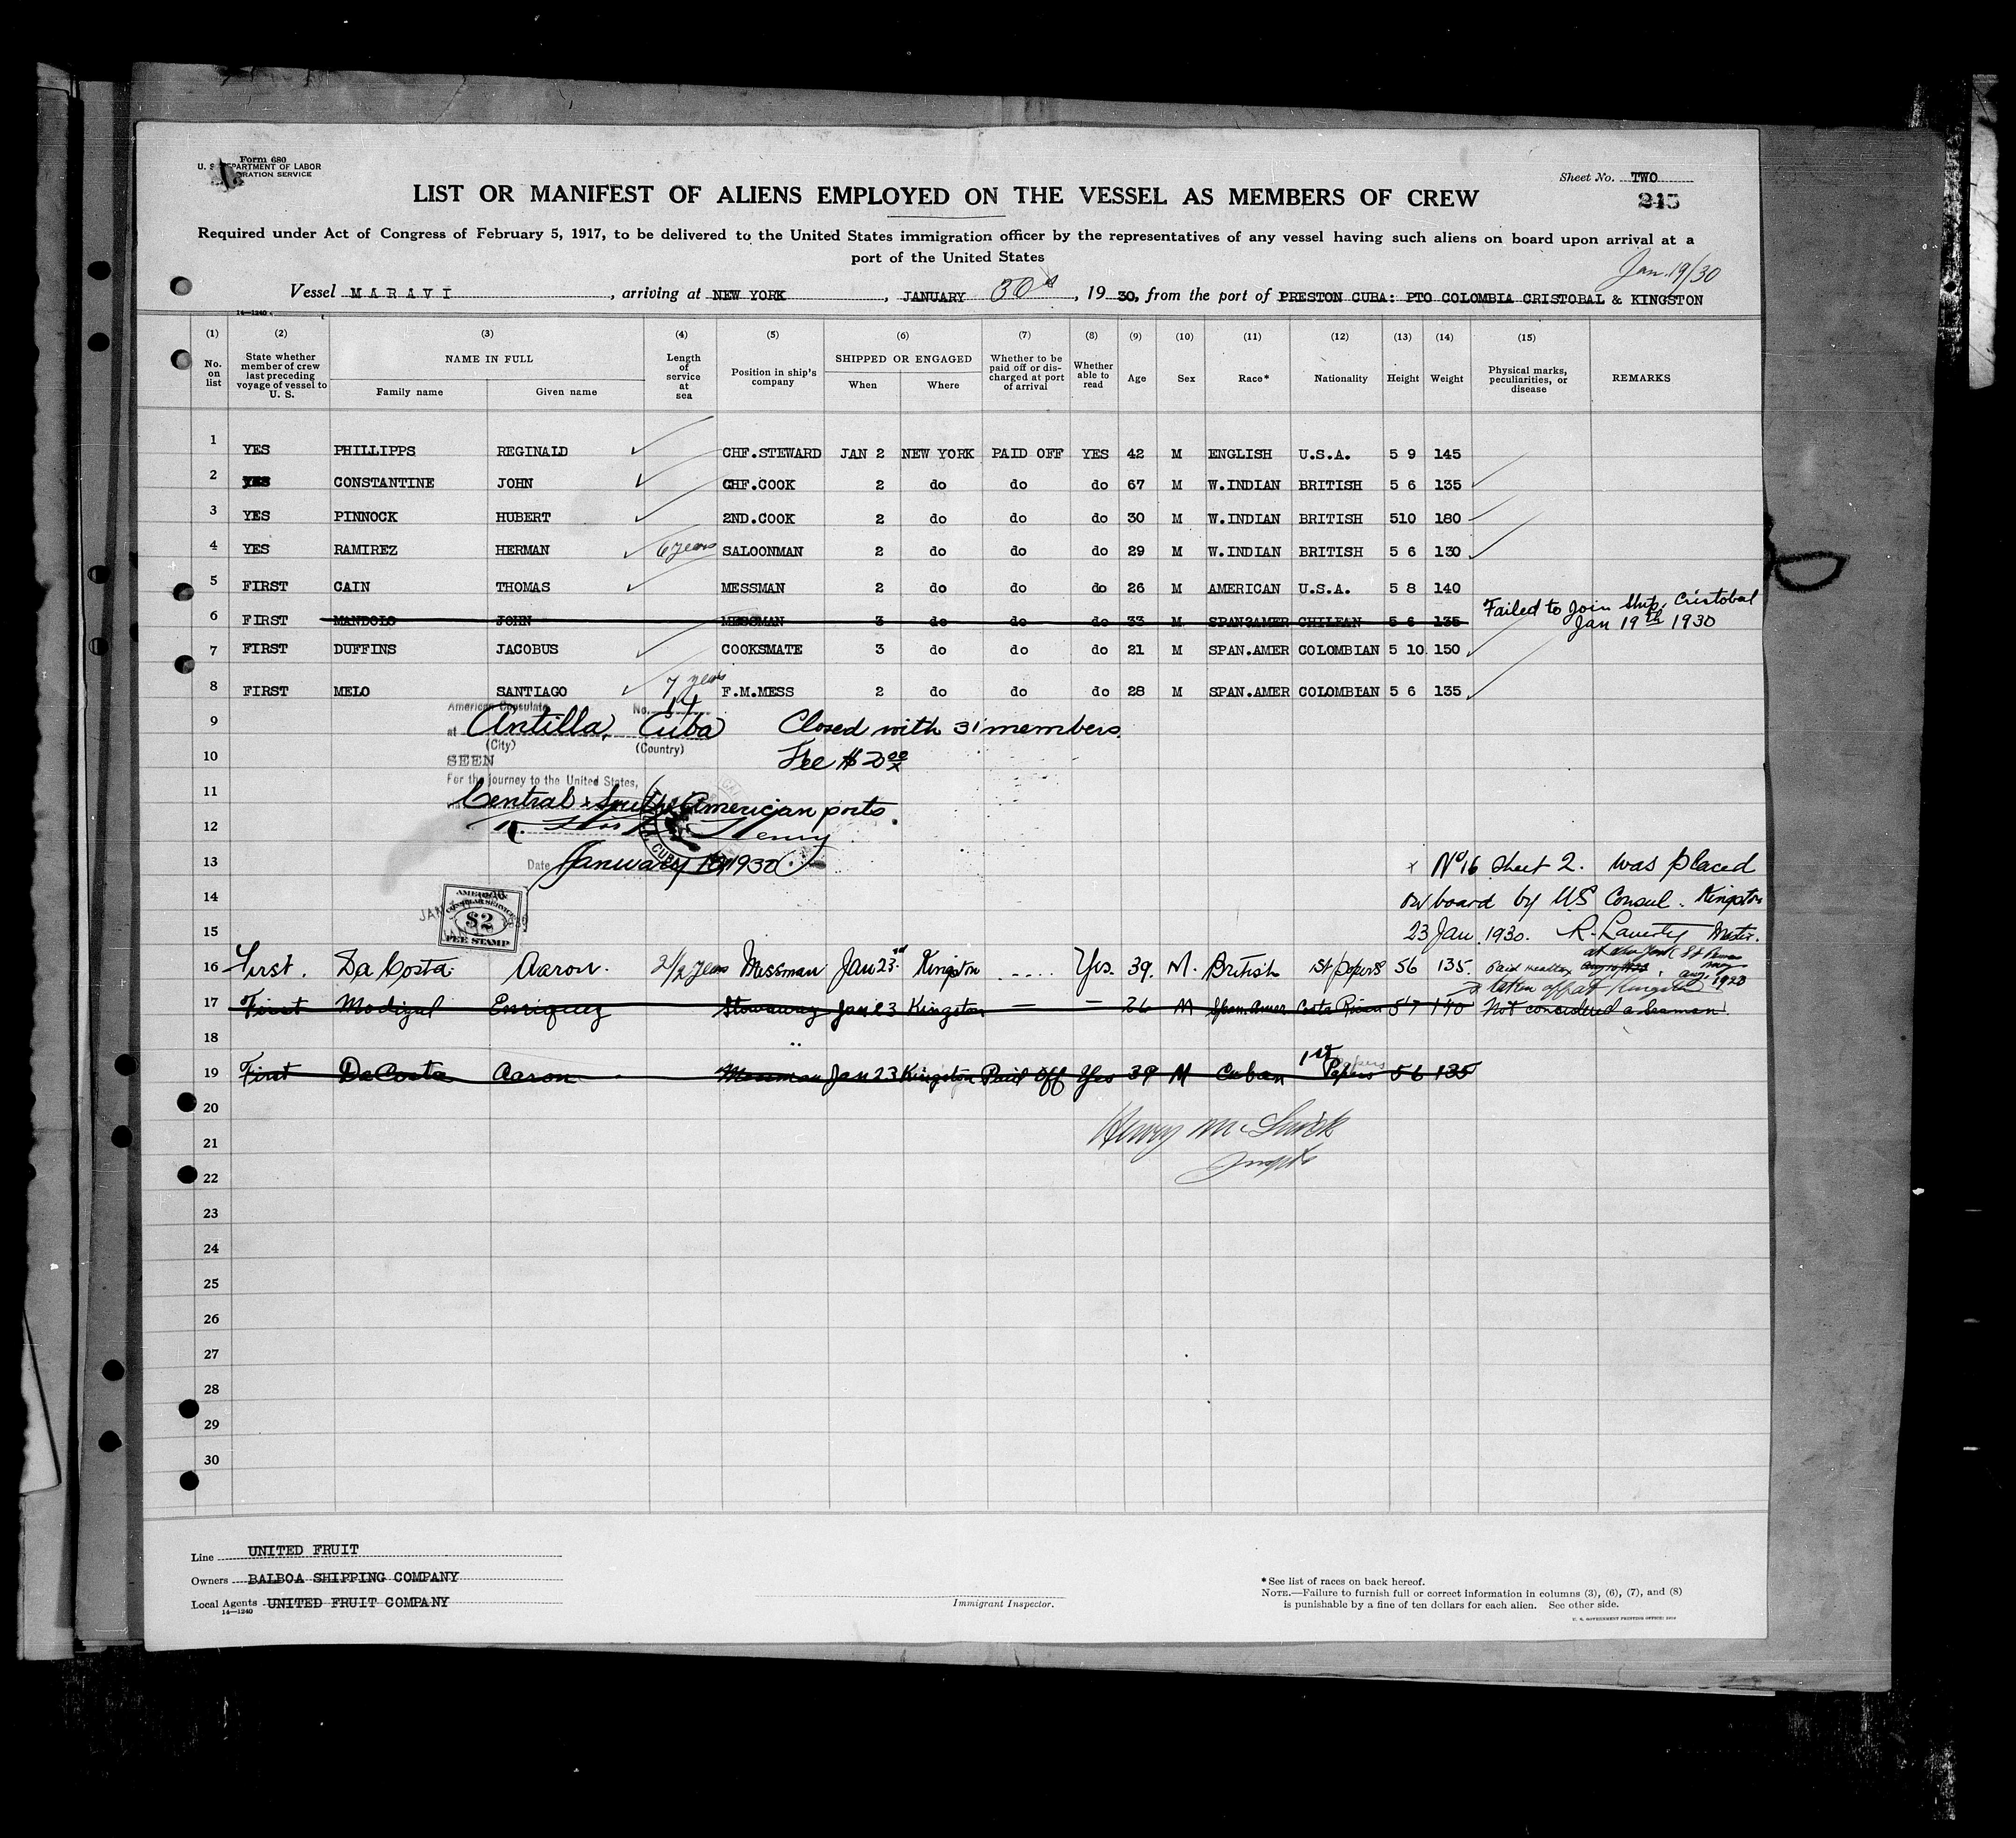 Form 680
U. S. DEPARTMENT OF LABOR
IMMIGRATION SERVICE
Sheet No. TWO
245
LIST OR MANIFEST OF ALIENS EMPLOYED ON THE VESSEL AS MEMBERS OF CREW
Required under Act of Congress of February 5, 1917, to be delivered to the United States immigration officer by the representatives of any vessel having such aliens on board upon arrival at a
port of the United States
Jan. 19/30
Vessel MARAVI, arriving at NEW YORK, JANUARY 30, 19 30, from the port of PRESTON CUBA: PTO COLOMBIA CRISTOBAL & KINGSTON
14—1240
(1) (2) (3) (4) (5) (6) (7) (8) (9) (10) (11) (12) (13) (14) (15)
No. on list State whether member of crew last preceding voyage of vessel to U. S. NAME IN FULL Family name Given name Length of service at sea Position in ship's company SHIPPED OR ENGAGED When Where Whether to be paid off or discharged at port of arrival Whether able to read Age Sex Race* Nationality Height Weight Physical marks, peculiarities, or disease REMARKS
1 YES PHILLIPPS REGINALD CHF.STEWARD JAN 2 NEW YORK PAID OFF YES 42 M ENGLISH U.S.A. 5 9 145
2 YES CONSTANTINE JOHN CHF.COOK 2 do do do 67 M W.INDIAN BRITISH 5 6 135
3 YES PINNOCK HUBERT 2ND.COOK 2 do do do 30 M W.INDIAN BRITISH 510 180
4 YES RAMIREZ HERMAN 6 years SALOONMAN 2 do do do 29 M W.INDIAN BRITISH 5 6 130
5 FIRST CAIN THOMAS MESSMAN 2 do do do 26 M AMERICAN U.S.A. 5 8 140
6 FIRST MANDOLO JOHN MESSMAN 3 do do do 33 M SPAN.AMER CHILEAN 5 6 135 Failed to join ship, Cristobal
Jan 19th 1930
7 FIRST DUFFINS JACOBUS COOKSMATE 3 do do do 21 M SPAN.AMER COLOMBIAN 5 10 150
8 FIRST MELO SANTIAGO 7 years F.M.MESS 2 do do do 28 M SPAN.AMER COLOMBIAN 5 6 135
American Consulate No. 14
9 at Antilla, Cuba Closed with 31 members
(City) (Country)
10 SEEN Fee $2.00
For the journey to the United States,
11 Central & South American ports.
12 Henry
13 Date January 1930 x No 16 Sheet 2. was placed
14 on board by US Consul. Kingston
AMERICAN CONSULAR SERVICE
$2
FEE STAMP
15 23 Jan. 1930. R. Laverty Master.
16 First. Da Costa. Aaron. 2 1/2 years Messman Jan 23rd Kingston .... Yes. 39. M. British 1st papers 56 135. Paid headtax at New York Aug. 1923
taken off at Kingston
17 First Madigal Enriquez Stowaway Jan 23 Kingston — — 26 M Span. Amer Costa Rican 57 140 Not considered a seaman.
18
19 First DaCosta Aaron Messman Jan 23 Kingston Paid Off Yes 39 M Cuban 1st Papers 56 135
20
21 Henry
22
23
24
25
26
27
28
29
30
Line UNITED FRUIT
Owners BALBOA SHIPPING COMPANY
Local Agents UNITED FRUIT COMPANY
14—1240
Immigrant Inspector.
*See list of races on back hereof.
NOTE.—Failure to furnish full or correct information in columns (3), (6), (7), and (8)
is punishable by a fine of ten dollars for each alien. See other side.
U. S. GOVERNMENT PRINTING OFFICE: